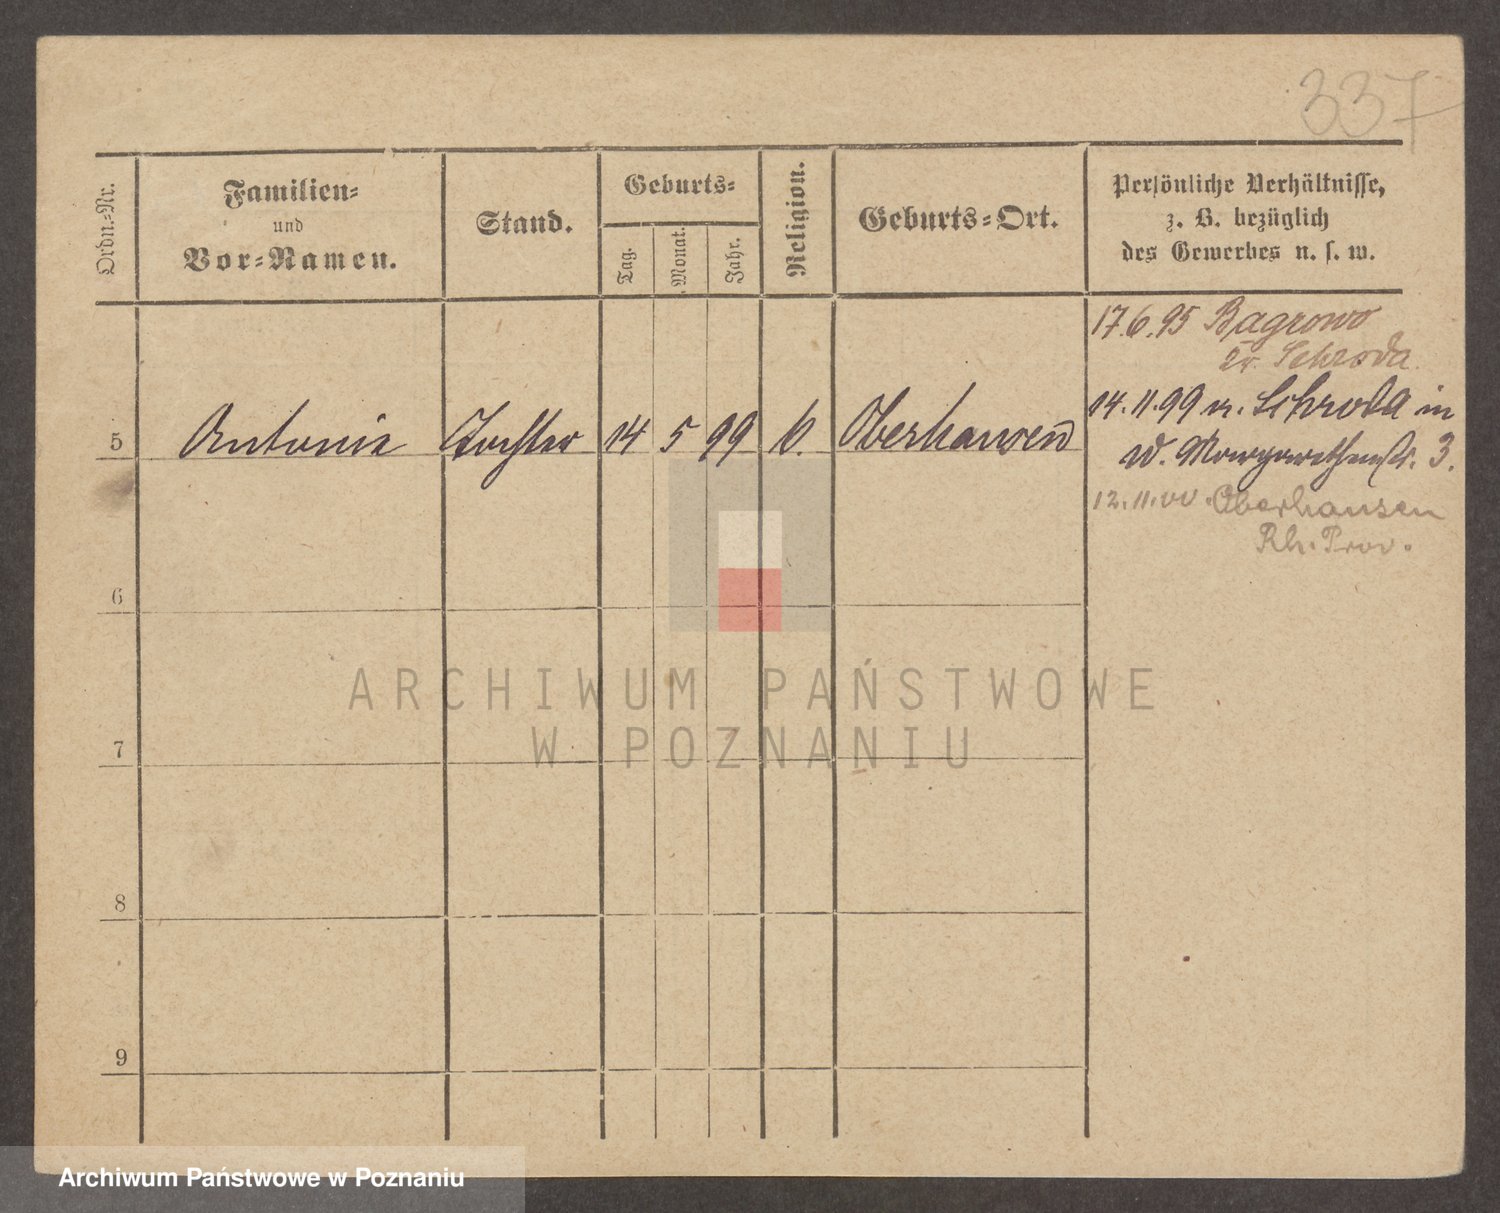 337
Ordn.-Nr.
Familien-
und
Vor-Namen.
Stand.
Geburts-
Tag.
Monat.
Jahr.
Religion.
Geburts-Ort.
Persönliche Verhältnisse,
z. B. bezüglich
des Gewerbes u. s. w.
17.6.95 Bagrowo
Kr. Schroda.
5 Antonie Tochter 14 5 99 k. Oberhausen
14.11.99 v. Schroda in
W. Margarethenstr. 3.
12.11.00. Oberhausen
Rh. Prov.
6
7
8
9
ARCHIWUM PAŃSTWOWE
W POZNANIU
Archiwum Państwowe w Poznaniu